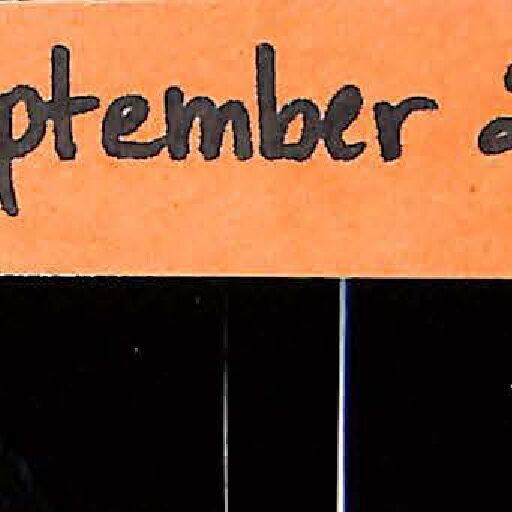 ptember 2